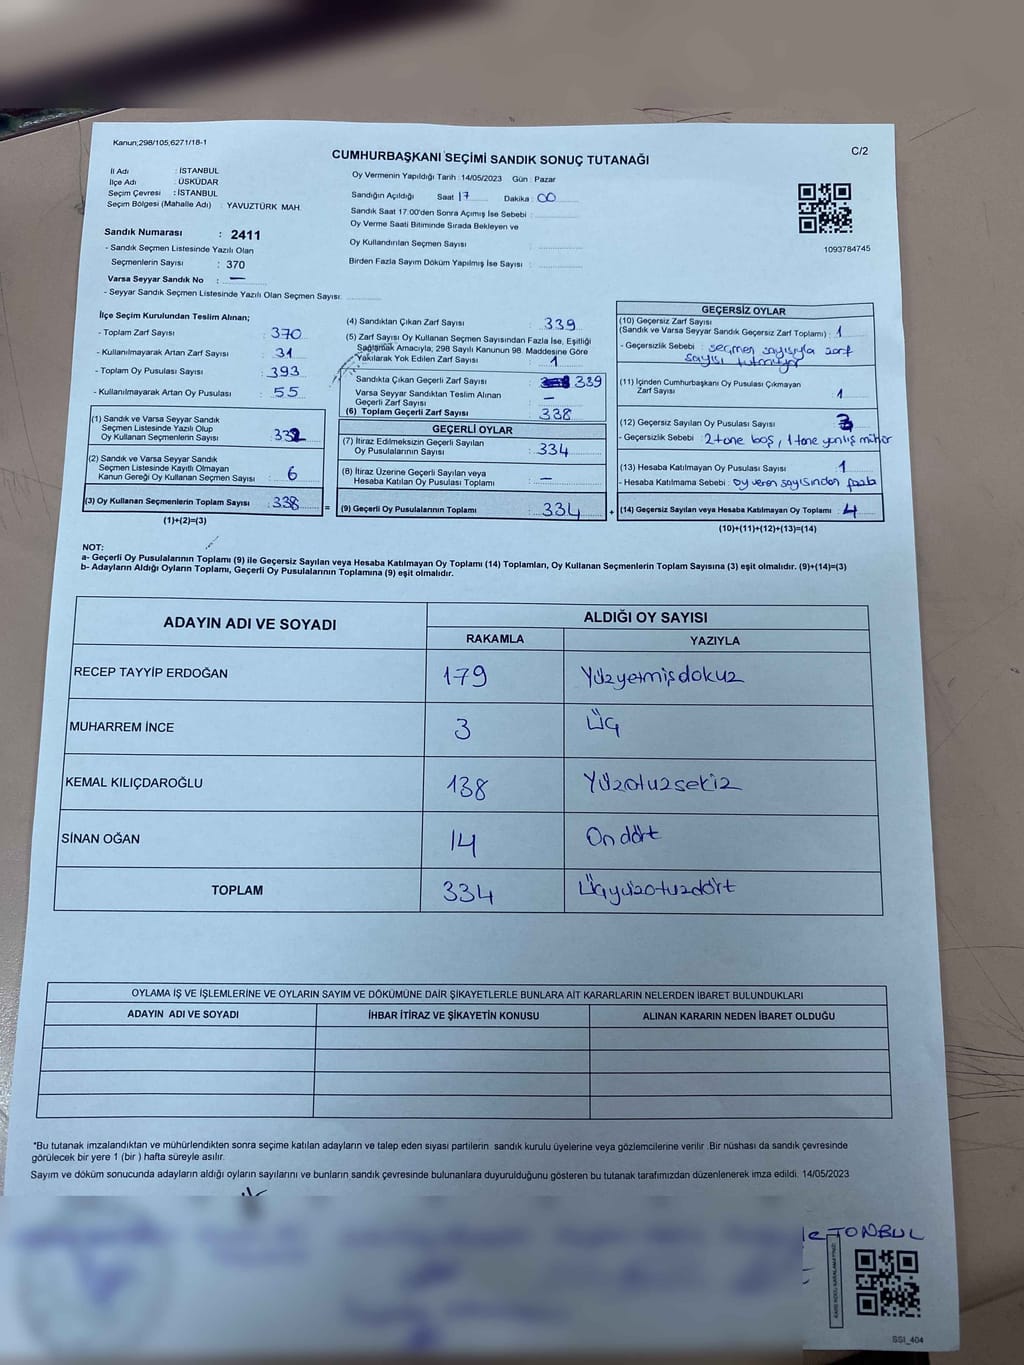 Kanun;298/105,6271/18-1
CUMHURBAŞKANI SEÇİMİ SANDIK SONUÇ TUTANAĞI
C/2
İl Adı : İSTANBUL
İlçe Adı : ÜSKÜDAR
Seçim Çevresi : İSTANBUL
Seçim Bölgesi (Mahalle Adı) : YAVUZTÜRK MAH.
Sandık Numarası : 2411
- Sandık Seçmen Listesinde Yazılı Olan
Seçmenlerin Sayısı : 370
Varsa Seyyar Sandık No : —
- Seyyar Sandık Seçmen Listesinde Yazılı Olan Seçmen Sayısı:
Oy Vermenin Yapıldığı Tarih : 14/05/2023 Gün : Pazar
Sandığın Açıldığı Saat 17 Dakika : 00
Sandık Saat 17.00'den Sonra Açımış İse Sebebi :
Oy Verme Saati Bitiminde Sırada Bekleyen ve
Oy Kullandırılan Seçmen Sayısı :
Birden Fazla Sayım Döküm Yapılmış İse Sayısı :
1093784745
İlçe Seçim Kurulundan Teslim Alınan;
- Toplam Zarf Sayısı : 370
- Kullanılmayarak Artan Zarf Sayısı : 31
- Toplam Oy Pusulası Sayısı : 393
- Kullanılmayarak Artan Oy Pusulası : 55
(1) Sandık ve Varsa Seyyar Sandık
Seçmen Listesinde Yazılı Olup
Oy Kullanan Seçmenlerin Sayısı : 332
(2) Sandık ve Varsa Seyyar Sandık
Seçmen Listesinde Kayıtlı Olmayan
Kanun Gereği Oy Kullanan Seçmen Sayısı : 6
(3) Oy Kullanan Seçmenlerin Toplam Sayısı : 338
(1)+(2)=(3)
(4) Sandıktan Çıkan Zarf Sayısı : 339
(5) Zarf Sayısı Oy Kullanan Seçmen Sayısından Fazla İse, Eşitliği
Sağlamak Amacıyla; 298 Sayılı Kanunun 98. Maddesine Göre
Yakılarak Yok Edilen Zarf Sayısı : 1
Sandıkta Çıkan Geçerli Zarf Sayısı : 339
Varsa Seyyar Sandıktan Teslim Alınan
Geçerli Zarf Sayısı : —
(6) Toplam Geçerli Zarf Sayısı : 338
GEÇERLİ OYLAR
(7) İtiraz Edilmeksizin Geçerli Sayılan
Oy Pusulalarının Sayısı : 334
(8) İtiraz Üzerine Geçerli Sayılan veya
Hesaba Katılan Oy Pusulası Toplamı : —
= (9) Geçerli Oy Pusulalarının Toplamı : 334 +
GEÇERSİZ OYLAR
(10) Geçersiz Zarf Sayısı
(Sandık ve Varsa Seyyar Sandık Geçersiz Zarf Toplamı) : 1
- Geçersizlik Sebebi : seçmen sayısıyla zarf
sayısı tutmuyor
(11) İçinden Cumhurbaşkanı Oy Pusulası Çıkmayan
Zarf Sayısı : 1
(12) Geçersiz Sayılan Oy Pusulası Sayısı : 3
- Geçersizlik Sebebi : 2 tane boş, 1 tane yanlış mühür
(13) Hesaba Katılmayan Oy Pusulası Sayısı : 1
- Hesaba Katılmama Sebebi : oy veren sayısından fazla
(14) Geçersiz Sayılan veya Hesaba Katılmayan Oy Toplamı : 4
(10)+(11)+(12)+(13)=(14)
NOT:
a- Geçerli Oy Pusulalarının Toplamı (9) ile Geçersiz Sayılan veya Hesaba Katılmayan Oy Toplamı (14) Toplamları, Oy Kullanan Seçmenlerin Toplam Sayısına (3) eşit olmalıdır. (9)+(14)=(3)
b- Adayların Aldığı Oyların Toplamı, Geçerli Oy Pusulalarının Toplamına (9) eşit olmalıdır.
ADAYIN ADI VE SOYADI ALDIĞI OY SAYISI
RAKAMLA YAZIYLA
RECEP TAYYİP ERDOĞAN 179 Yüzyetmişdokuz
MUHARREM İNCE 3 Üç
KEMAL KILIÇDAROĞLU 138 Yüzotuzsekiz
SİNAN OĞAN 14 On dört
TOPLAM 334 Üçyüzotuzdört
OYLAMA İŞ VE İŞLEMLERİNE VE OYLARIN SAYIM VE DÖKÜMÜNE DAİR ŞİKAYETLERLE BUNLARA AİT KARARLARIN NELERDEN İBARET BULUNDUKLARI
ADAYIN ADI VE SOYADI İHBAR İTİRAZ VE ŞİKAYETİN KONUSU ALINAN KARARIN NEDEN İBARET OLDUĞU
*Bu tutanak imzalandıktan ve mühürlendikten sonra seçime katılan adayların ve talep eden siyasi partilerin sandık kurulu üyelerine veya gözlemcilerine verilir .Bir nüshası da sandık çevresinde
görülecek bir yere 1 (bir ) hafta süreyle asılır.
Sayım ve döküm sonucunda adayların aldığı oyların sayılarını ve bunların sandık çevresinde bulunanlara duyurulduğunu gösteren bu tutanak tarafımızdan düzenlenerek imza edildi. 14/05/2023
TONBUL
SSI_404